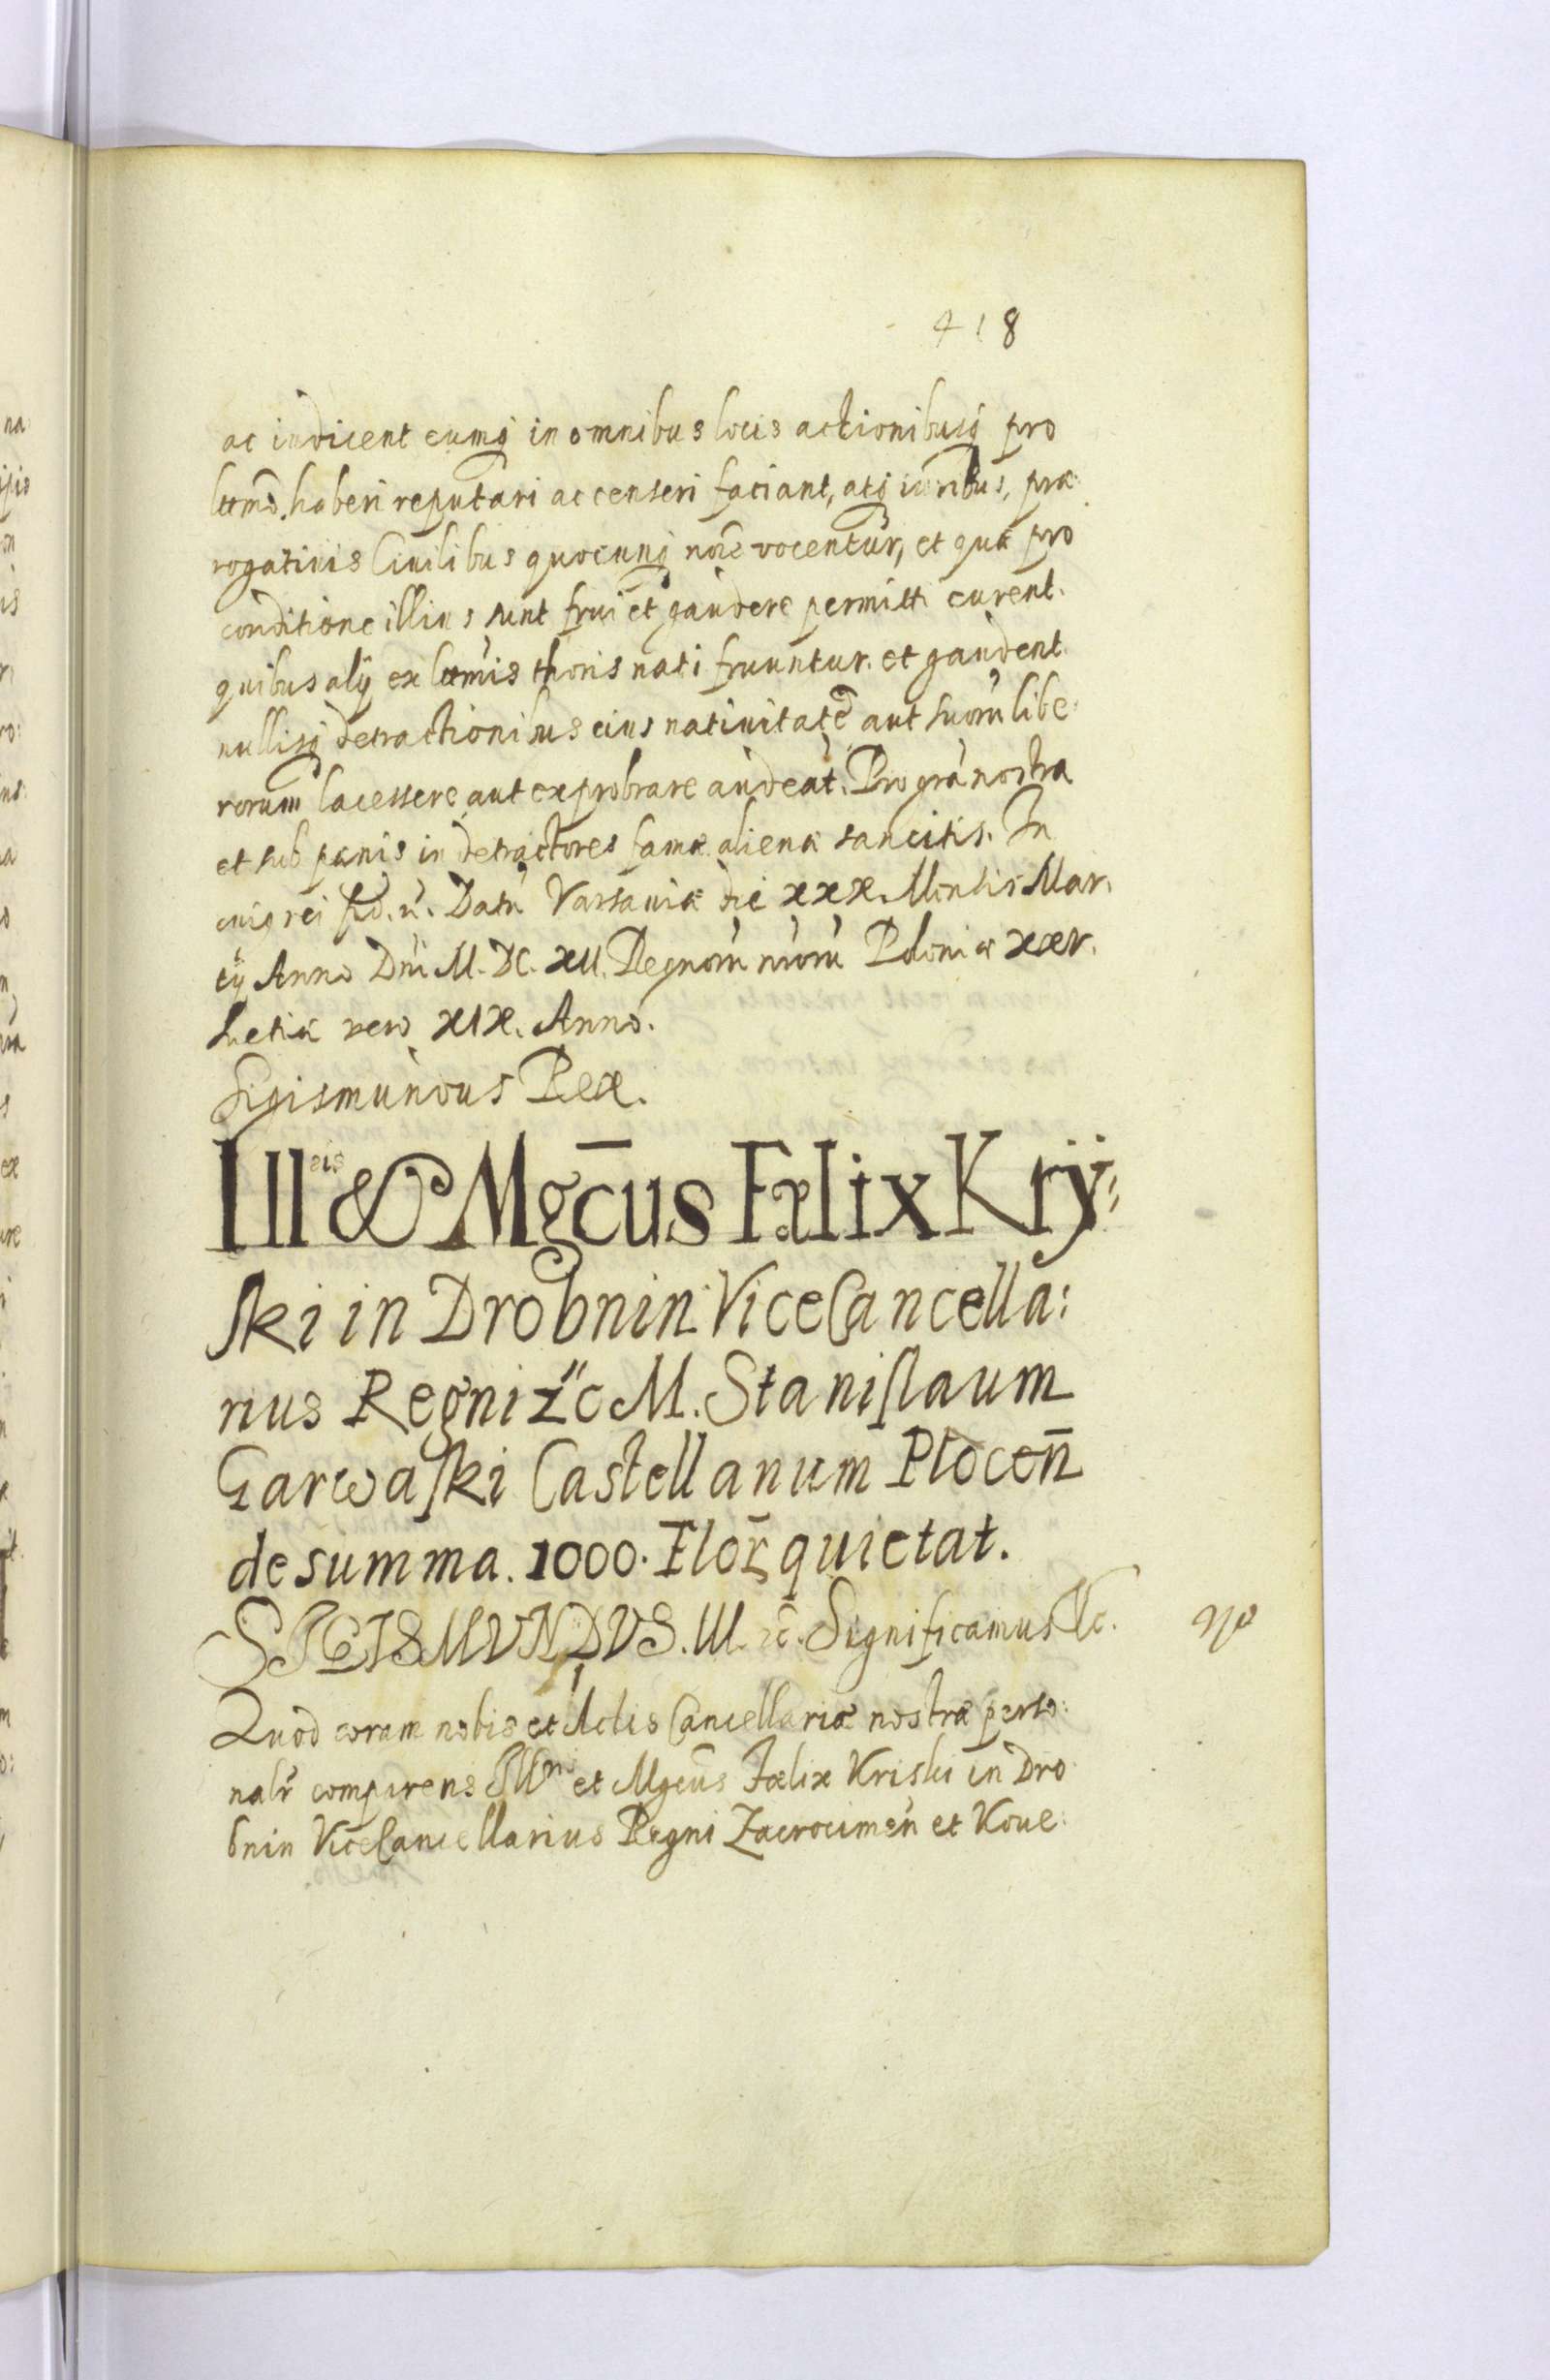 418
ac indicent eumq́ in omnibus locis actionibusq́ pro
lttmõ haberi reputari ac censeri faciant, atq́ iuribus, præ:
rogatiuis Ciuilibus quocunq́ noĩe vocentur, et quæ pro
conditione illius sunt frui et gaudere permitti curent.
quibus alÿ ex lttmis thoris nati fruuntur et gaudent.
nullisq́ detractionibus eius natiuitatẽ aut suorũ libe:
rorum lacessere aut exprobrare audeat. Pro grã nostra
et sub pænis in detractores famæ alienæ sancitis. In
cuius rei fid. ñ. Datũ Varsauiæ die XXX. Mensis Mar.
tÿ Anno Dñi M. DC. XII. Regnorũ nrorũ Poloniæ XXV.
Suetiæ vero XIX. Anno.
Sigismundus Rex.
Ill & Mgc̄us Fælix Krÿ:
ski in Drobnin ViceCancella:
rius Regni z̈c M. Stanislaum
Garwaski Castellanum Plocen̄
de summa. 1000. Flor̄ quietat.
SIGISMVNDVS. III. zc̄. Significamus &c.
Quod coram nobis et Actis Cancellariæ nostræ perso:
nalr̃ comparens Illⁿˢ et Mgcũs Fælix Kriski in Dro
bnin ViceCancellarius Regni Zacrocimeñ et Koue: